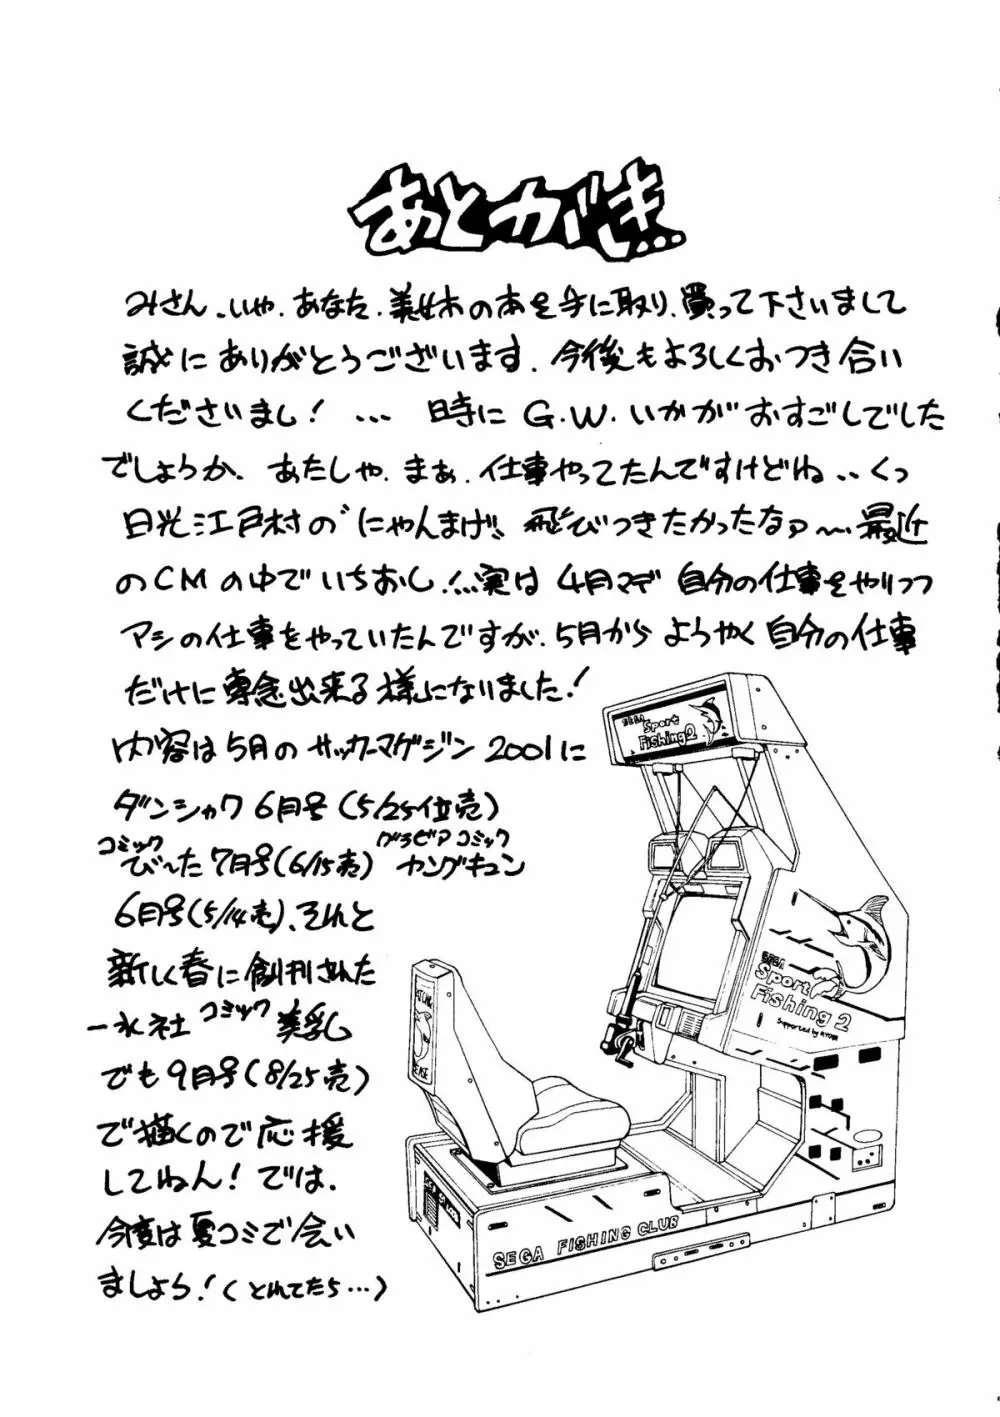 あとがき…
みさん、いや、あなた、美女木の本を手に取り、買って下さいまして
誠にありがとうございます。今後もよろしくおつき合い
くださいまし! … 時に G.W. いかがおすごしでした
でしょうか、あたしゃ、まぁ、仕事やってたんですけどね‥くっ
日光江戸村の"にゃんまげ" 飛びつきたかったなァ〜 最近
のCMの中でいちおし!…実は4月マデ 自分の仕事をやりつつ
アシの仕事をやっていたんですが、5月からようやく自分の仕事
だけに専念出来る様になりました!
内容は5月のサッカーマガジン2001に
ダンシャク6月号(5/25位売)
コミック
びーた7月号(6/15売)
ぐらびアコミック
ヤングキュン
6月号(5/14売)、それと
新しく春に創刊された
一水社 コミック 美乳
でも9月号(8/25売)
で描くので応援
してねん! では、
今度は夏コミで会い
ましょう!(とれてたら…)
SEGA
Sport
Fishing 2
SEGA
Sport
Fishing 2
Supported by RYOBI
SEGA FISHING CLUB